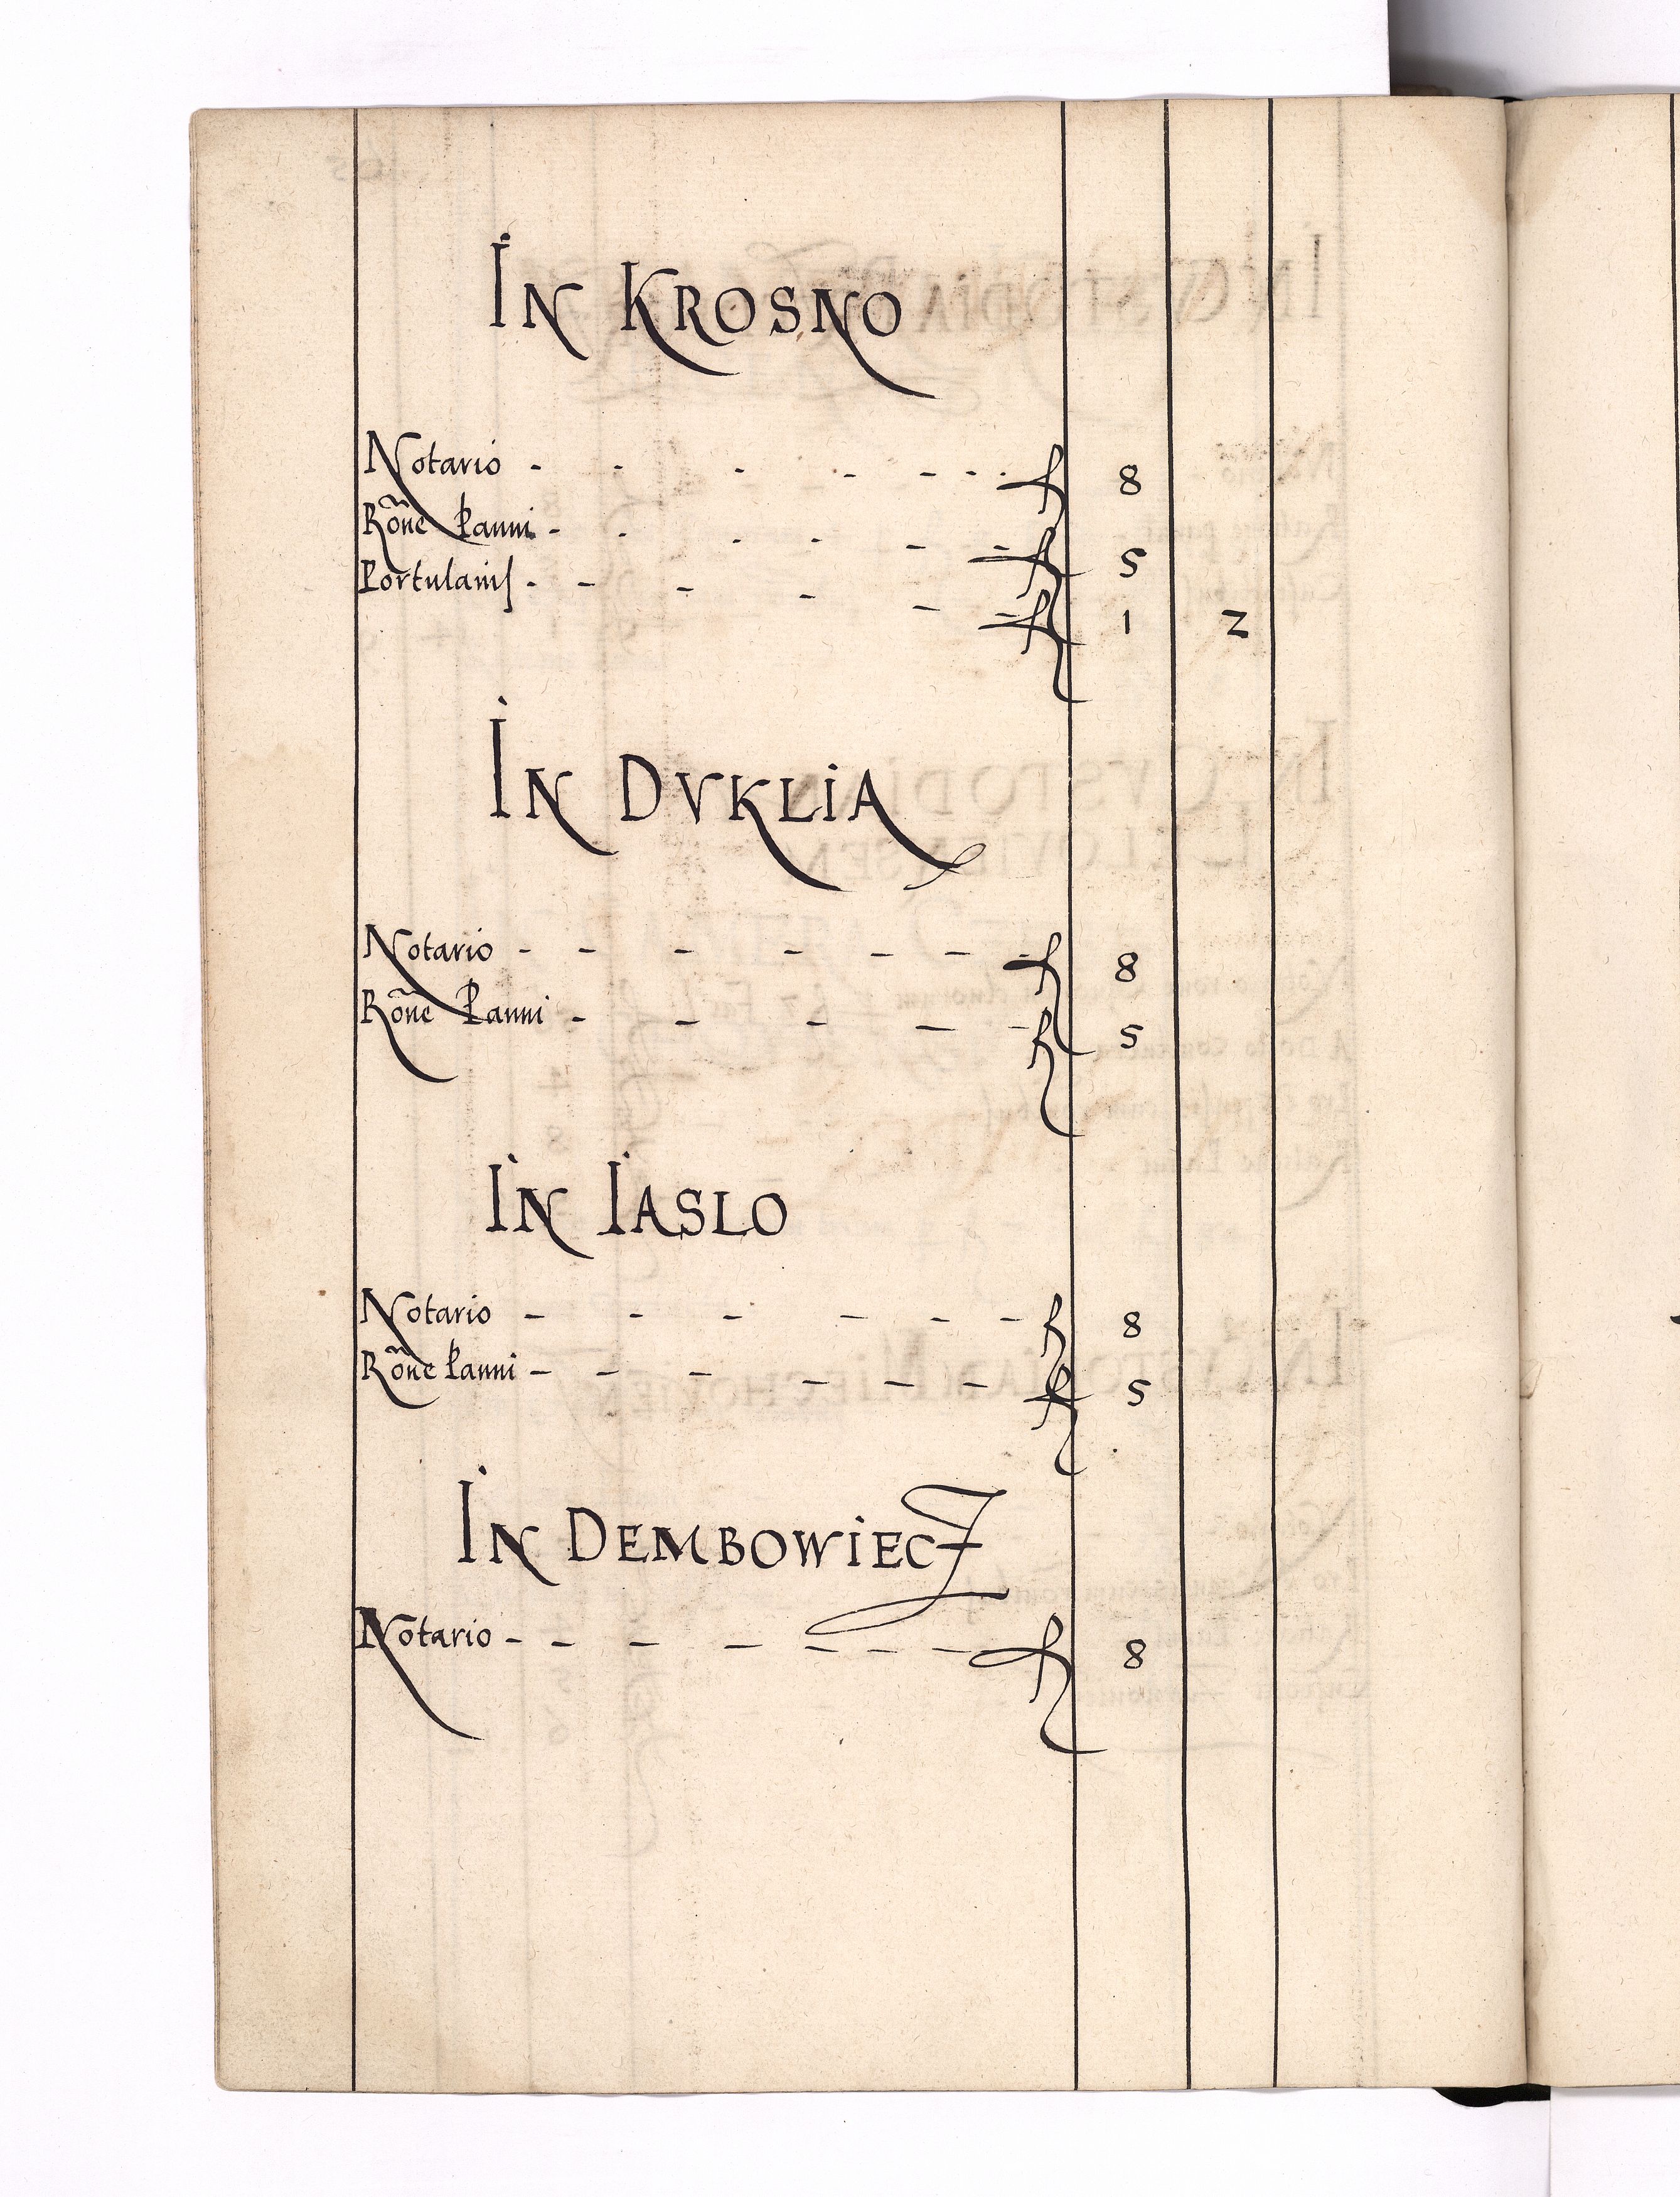 IN KROSNO
Notario - - - - - - - fl 8
Rõne Panni - - - - - - fl 5
Portulanis - - - - - - fl 1 2
IN DVKLIA
Notario - - - - - - - fl 8
Rõne Panni - - - - - fl 5
IN IASLO
Notario - - - - - - fl 8
Rõne Panni - - - - - - fl 5
IN DEMBOWIECZ
Notario - - - - - - - fl 8